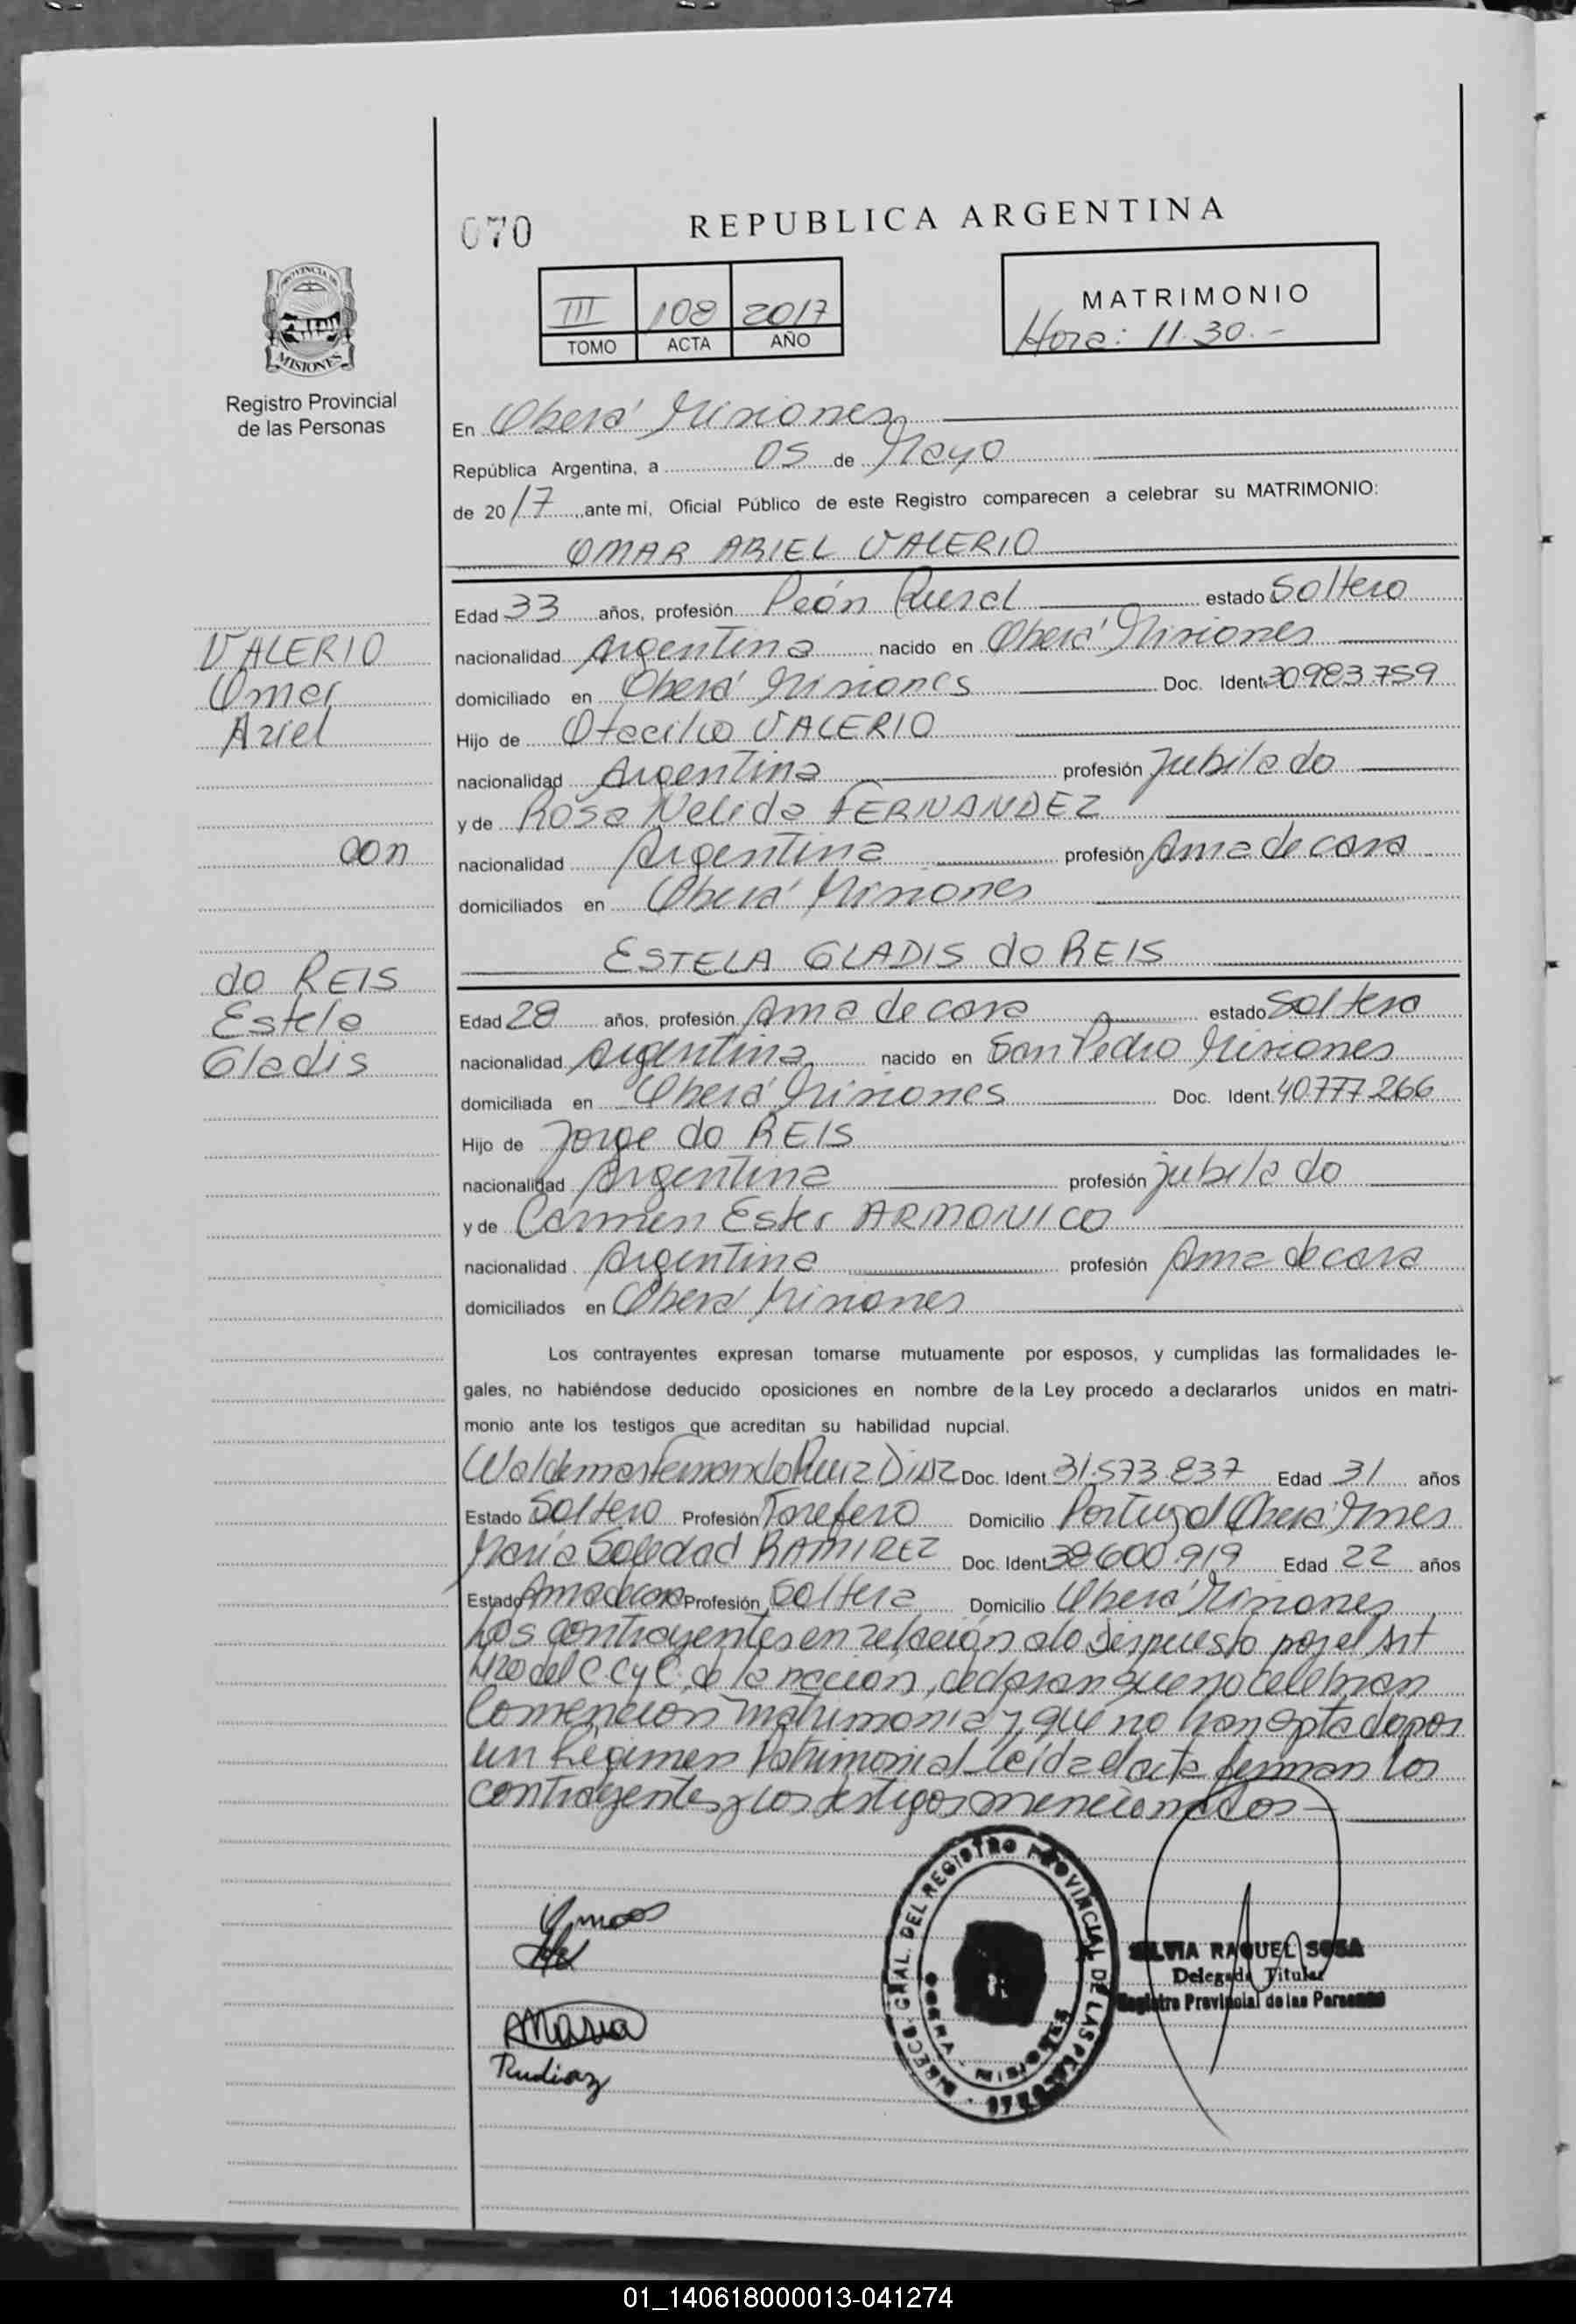 070
REPUBLICA ARGENTINA
PROVINCIA DE
MISIONES
Registro Provincial
de las Personas
III 108 2017
TOMO ACTA AÑO
MATRIMONIO
Hora: 11.30.-
En Oberá Misiones
República Argentina, a 05 de Mayo
de 2017 ante mi, Oficial Público de este Registro comparecen a celebrar su MATRIMONIO:
OMAR ARIEL VALERIO
Edad 33 años, profesión Peón Rural estado Soltero
VALERIO
Omar
Ariel
nacionalidad Argentina nacido en Oberá Misiones
domiciliado en Oberá Misiones Doc. Ident. 30983759
Hijo de Otacilio VALERIO
nacionalidad Argentina profesión Jubilado
y de Rosa Nelida FERNANDEZ
con
nacionalidad Argentina profesión Ama de casa
domiciliados en Oberá Misiones
ESTELA GLADIS do REIS
do REIS
Estela
Gladis
Edad 28 años, profesión Ama de casa estado Soltera
nacionalidad Argentina nacido en San Pedro Misiones
domiciliada en Oberá Misiones Doc. Ident. 40.777.266
Hijo de Jorge do REIS
nacionalidad Argentina profesión jubilado
y de Carmen Ester ARMONICO
nacionalidad Argentina profesión Ama de casa
domiciliados en Oberá Misiones
Los contrayentes expresan tomarse mutuamente por esposos, y cumplidas las formalidades le-
gales, no habiéndose deducido oposiciones en nombre de la Ley procedo a declararlos unidos en matri-
monio ante los testigos que acreditan su habilidad nupcial.
Waldemar Fernando Ruiz DIAZ Doc. Ident. 31.573.837 Edad 31 años
Estado Soltero Profesión Tarefero Domicilio Portugal Oberá Mnes
María Soledad RAMIREZ Doc. Ident. 38600.919 Edad 22 años
Estado Ama de casa Profesión Soltera Domicilio Oberá Misiones
Los contrayentes en relación a lo dispuesto por el Art
420 del C.C y C. de la nación, declaran que no celebran
Convención matrimonial y que no han optado por
un Régimen Patrimonial Leída el acta firman los
contrayentes y los testigos mencionados
Maria
Rudiaz
DIRECC. GRAL. DEL REGISTRO PROVINCIAL DE LAS PERSONAS
OBERA - MISIONES
SILVIA RAQUEL SOSA
Delegada Titular
Registro Provincial de las Personas
01_140618000013-041274